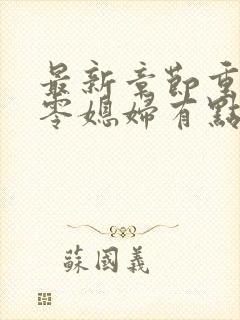 最新章節重
零媳婦有點
蘇國義